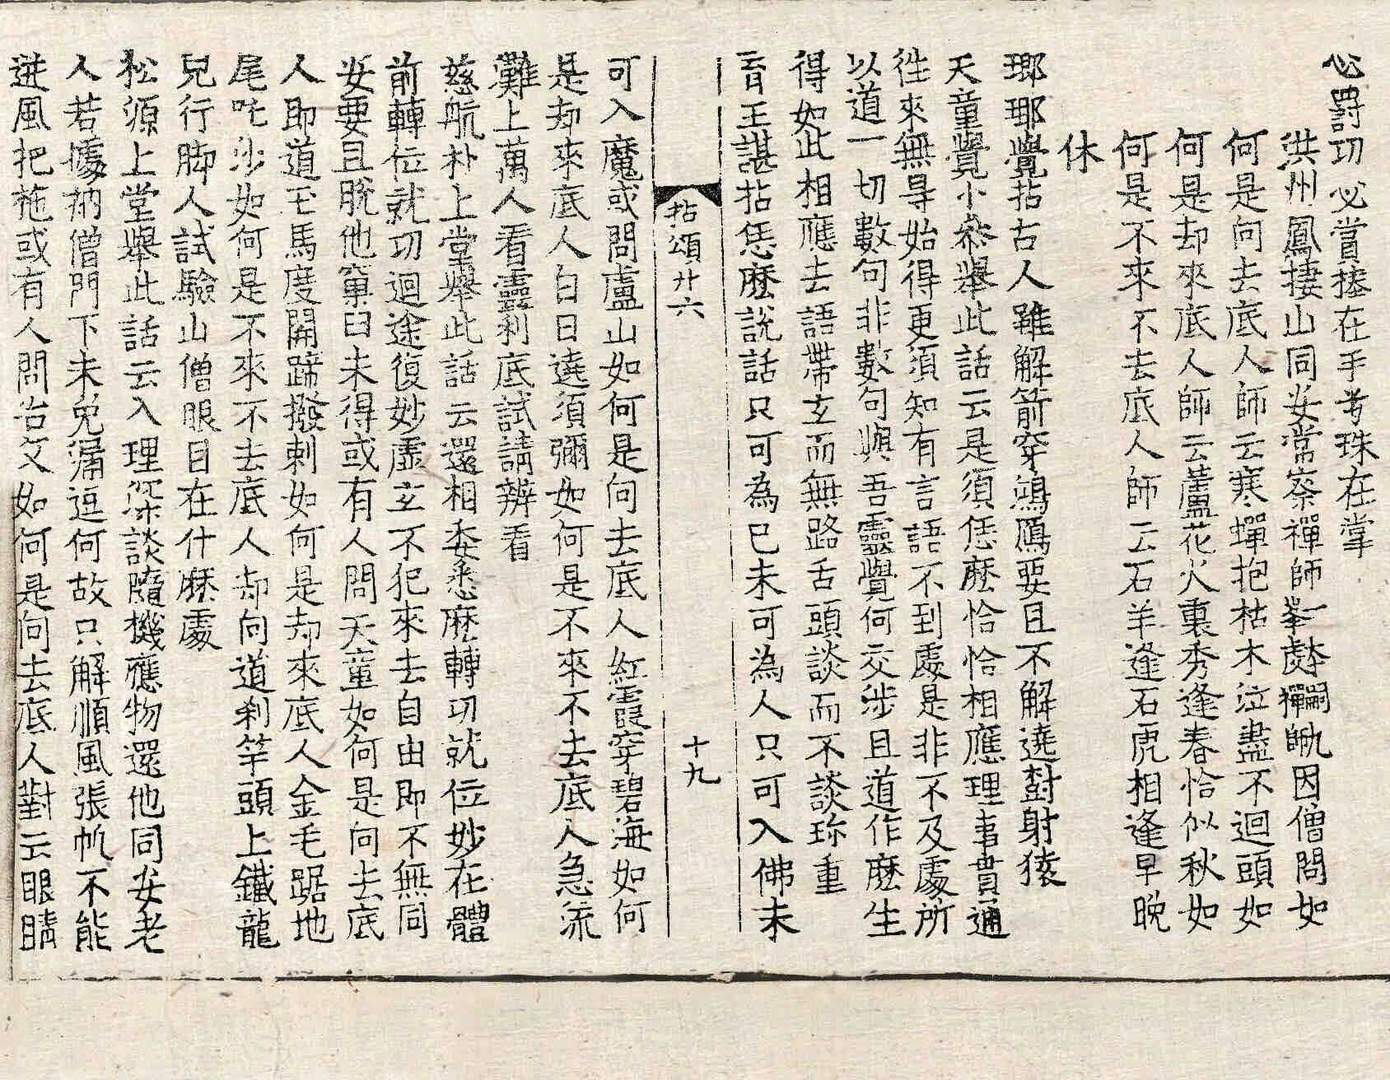 必罰功必賞捧在手芳珠在掌
洪州鳳棲山同安常察禪師因僧問如
何是向去底人師云寒蟬抱枯木泣盡不迴頭如
何是却來底人師云蘆花火裏秀逢春恰似秋如
何是不來不去底人師云石羊逢石虎相逢早晚
休
瑯瑘覺拈古人雖解箭穿鴻鴈要且不解遶樹射猿
天童覺小叅舉此話云是須恁麽恰恰相應理事貫通
徃來無㝵始得更須知有言語不到處是非不及處所
以道一切數句非數句與吾靈覺何交涉且道作麽生
得如此相應去語帶玄而無路舌頭談而不談珎重
育王諶拈恁麽說話只可為已未可為人只可入佛未
拈頌廾六
十九
可入魔或問盧山如何是向去底人紅霞穿碧海如何
是却來底人白日遶須彌如何是不來不去底人急流
灘上萬人看靈利底試請辨看
慈航朴上堂舉此話云還相委悉麽轉功就位妙在體
前轉位就功迴途復妙虛玄不犯來去自由即不無同
安要且脫他窠臼未得或有人問天童如何是向去底
人即道玉馬度關蹄撥剌如何是却來底人金毛踞地
尾吒沙如何是不來不去底人却向道刹竿頭上鐵龍
兒行脚人試驗山僧眼目在什麽處
松源上堂舉此話云入理深談隨機應物還他同安老
人若據衲僧門下未免漏逗何故只解順風張帆不能
逆風把拖或有人問冶父如何是向去底人對云眼睛